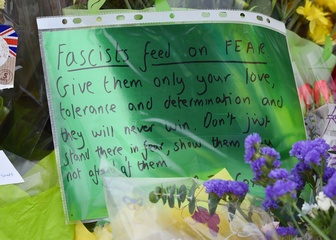 Fascists feed on FEAR
Give them only your love,
tolerance and determination and
they will never win. Don't just
stand there in fear, show them
not afraid of them